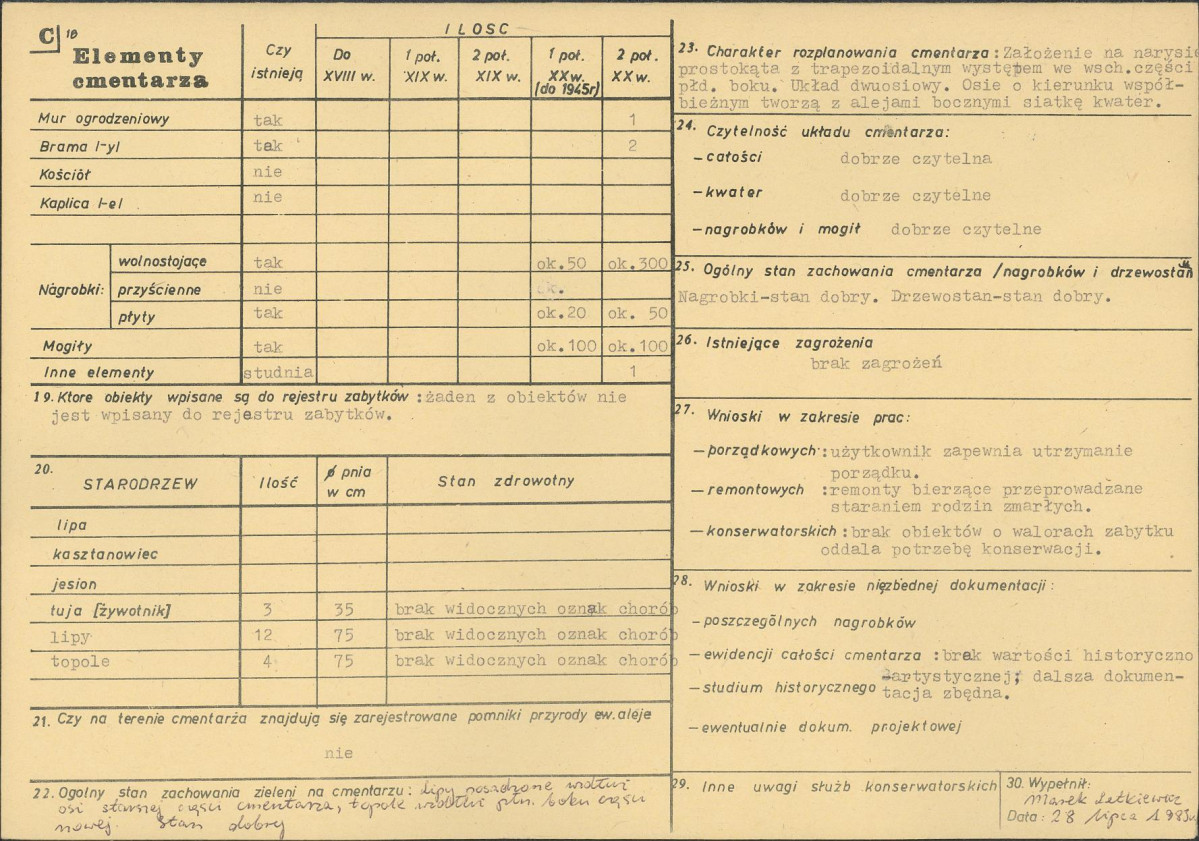 C 18 Elementy cmentarza
Czy istnieją
ILOSC
Do XVIII w.
1 poł. XIX w.
2 poł. XIX w.
1 poł. XX w. (do 1945r)
2 poł. XX w.
Mur ogrodzeniowy tak 1
Brama l-yl tak 2
Kościół nie
Kaplica l-el nie
Nagrobki: wolnostojące tak ok.50 ok.300
przyścienne nie ok.
płyty tak ok.20 ok. 50
Mogiły tak ok.100 ok.100
Inne elementy studnia 1
19. Ktore obiekty wpisane są do rejestru zabytków : żaden z obiektów nie
jest wpisany do rejestru zabytków.
20. STARODRZEW Ilość ø pnia w cm Stan zdrowotny
lipa
kasztanowiec
jesion
tuja [żywotnik] 3 35 brak widocznych oznak chorób
lipy 12 75 brak widocznych oznak chorób
topole 4 75 brak widocznych oznak chorób
21. Czy na terenie cmentarza znajdują się zarejestrowane pomniki przyrody ew. aleje
nie
22. Ogolny stan zachowania zieleni na cmentarzu : lipy posadzone wzdłuż
osi starszej części cmentarza, topole wzdłuż płn. boku części
nowej. Stan dobry
23. Charakter rozplanowania cmentarza : Założenie na narysie
prostokąta z trapezoidalnym występem we wsch.części
płd. boku. Układ dwuosiowy. Osie o kierunku współ-
bieżnym tworzą z alejami bocznymi siatkę kwater.
24. Czytelność układu cmentarza:
— całości dobrze czytelna
— kwater dobrze czytelne
— nagrobków i mogił dobrze czytelne
25. Ogólny stan zachowania cmentarza /nagrobków i drzewostan
Nagrobki-stan dobry. Drzewostan-stan dobry.
26. Istniejące zagrożenia
brak zagrożeń
27. Wnioski w zakresie prac:
— porządkowych : użytkownik zapewnia utrzymanie
porządku.
— remontowych : remonty bierzące przeprowadzane
staraniem rodzin zmarłych.
— konserwatorskich : brak obiektów o walorach zabytku
oddala potrzebę konserwacji.
28. Wnioski w zakresie niezbednej dokumentacji :
— poszczególnych nagrobków
— ewidencji całości cmentarza : brak wartości historyczno
— studium historycznego -artystycznej; dalsza dokumen-
tacja zbędna.
— ewentualnie dokum. projektowej
29. Inne uwagi służb konserwatorskich
30. Wypełnił:
Marek Letkiewicz
Data: 28 lipca 1983